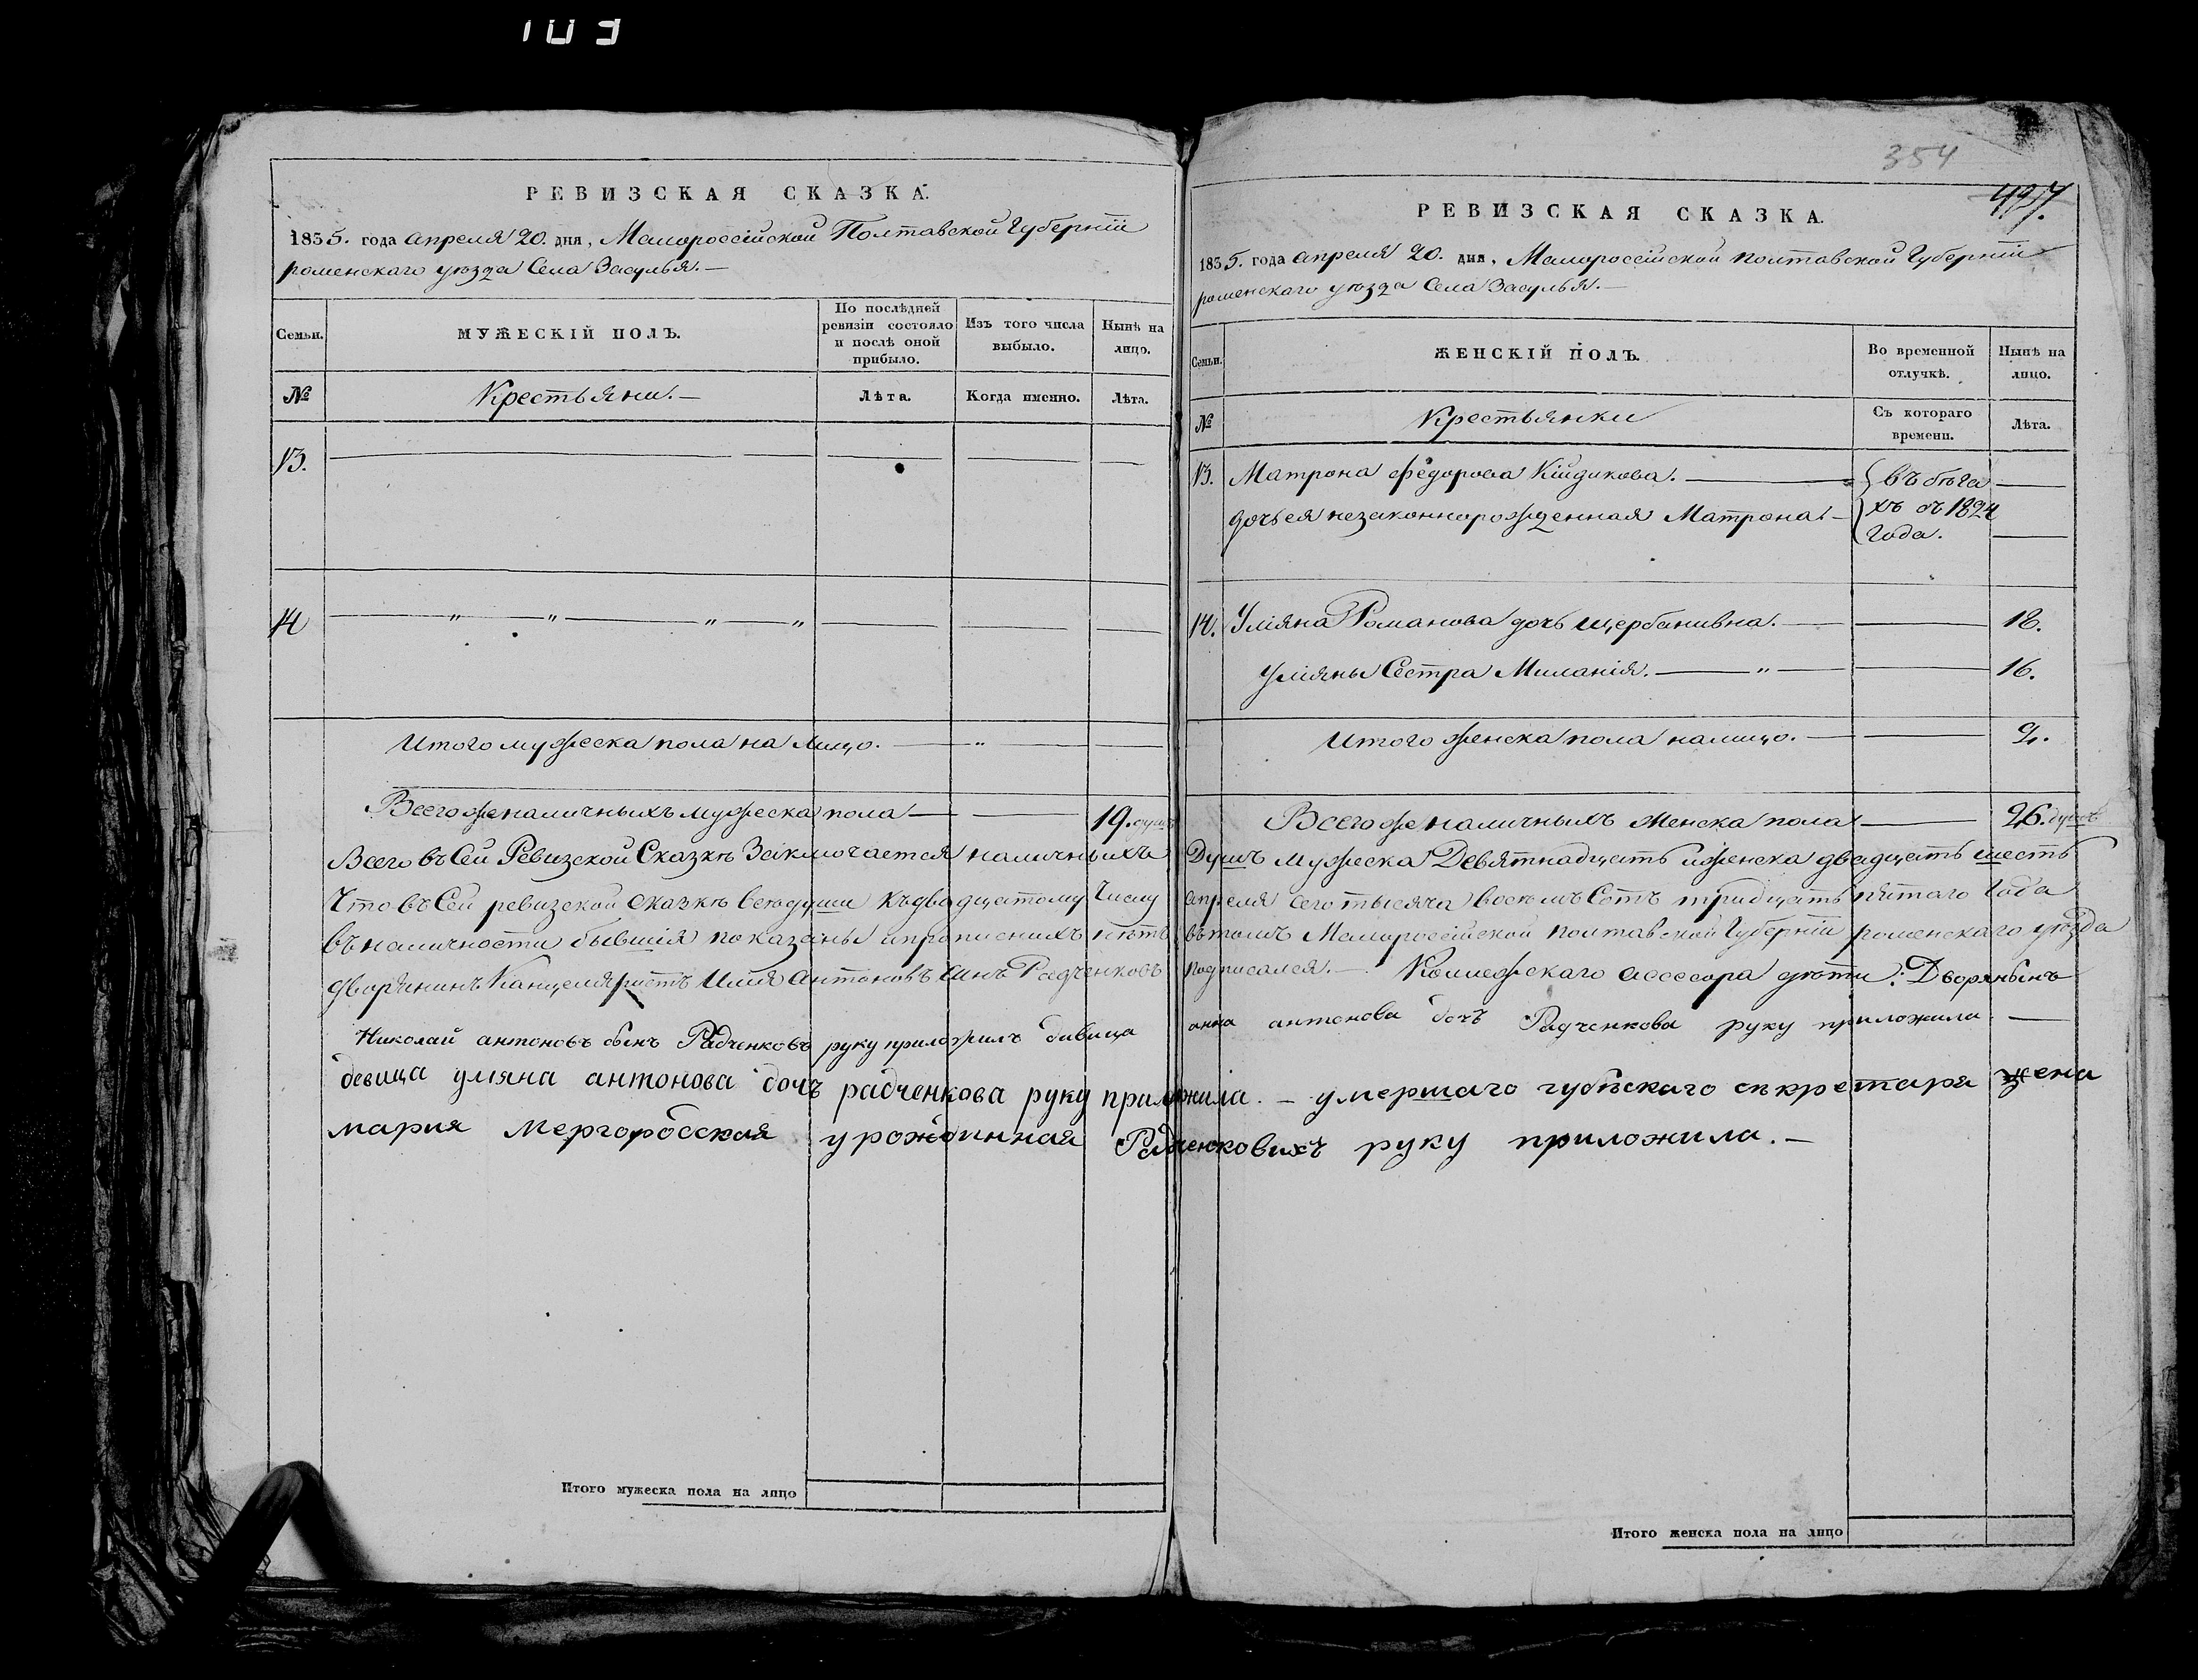 103
РЕВИЗСКАЯ СКАЗКА.
1835. года Апреля 20. дня, Малороссійской Полтавской Губерніи
роменскаго уезда Села Засулья. —
Семьи.
МУЖЕСКІЙ ПОЛЪ.
По послѣдней ревизіи состояло и послѣ оной прибыло.
Изъ того числа выбыло.
Нынѣ на лицо.
№
Крестьяни. —
Лѣта.
Когда именно.
Лѣта.
13.
14
Итого мужеска пола на лицо. — " —
Всегоже наличныхъ мужеска пола — — 19. душъ
Итого мужеска пола на лицо
354
497.
РЕВИЗСКАЯ СКАЗКА.
1835. года Апреля 20. дня, Малороссійской полтавской Губерніи
роменскаго уезда Села Засулья. —
Семьи.
ЖЕНСКІЙ ПОЛЪ.
Во временной отлучкѣ.
Нынѣ на лицо.
№
Крестьянки
Съ котораго времени.
Лѣта.
13. Матрона Федорова — въ бѣга
дочь ея незаконнорожденная Матрона. — хъ съ 1824
года.
14. Уліяна Романова дочь щербанивна. — — 18.
Уліяны Сестра Миланія. — " — — 16.
Итого женска пола налицо. — — 2.
Всегоже наличныхъ женска пола — 26. душъ
Всего въ Сей Ревизской Сказкѣ Заключается наличныхъ Душъ мужеска Девятнадцать иженска двадцать шесть
Что въ Сей ревизской сказкѣ всѣ души къ двадцатому Числу апреля сего тысяча восемъ Сотъ тридцать пятаго Года
въ наличности бывшія показаны и прописнихъ нѣтъ въ томъ Малороссійской полтавской Губерніи роменскаго уезда
дворянинъ Канцеляристъ Илия Антоновъ Синъ Радченковъ подписался. — Коллежскаго асессора дѣти: Дворянынъ
Николай антоновъ сынъ Радченковъ руку приложилъ девица анна антонова дочь Радченкова руку приложила. —
девица уляна антонова дочъ радченкова руку приложила. — умершаго губскаго секретаря жена
мария урожденная Радченковихъ руку приложила. —
Итого женска пола на лицо